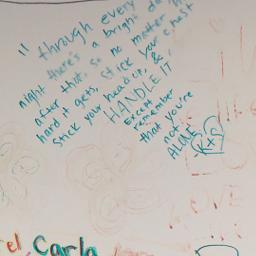 "through every
night there's a bright day
after that, so no matter how
hard it gets, stick your chest
stick your head up, &
HANDLE IT
Except
remember
that you're
not
ALONE
K+S
LOVE
el Carla